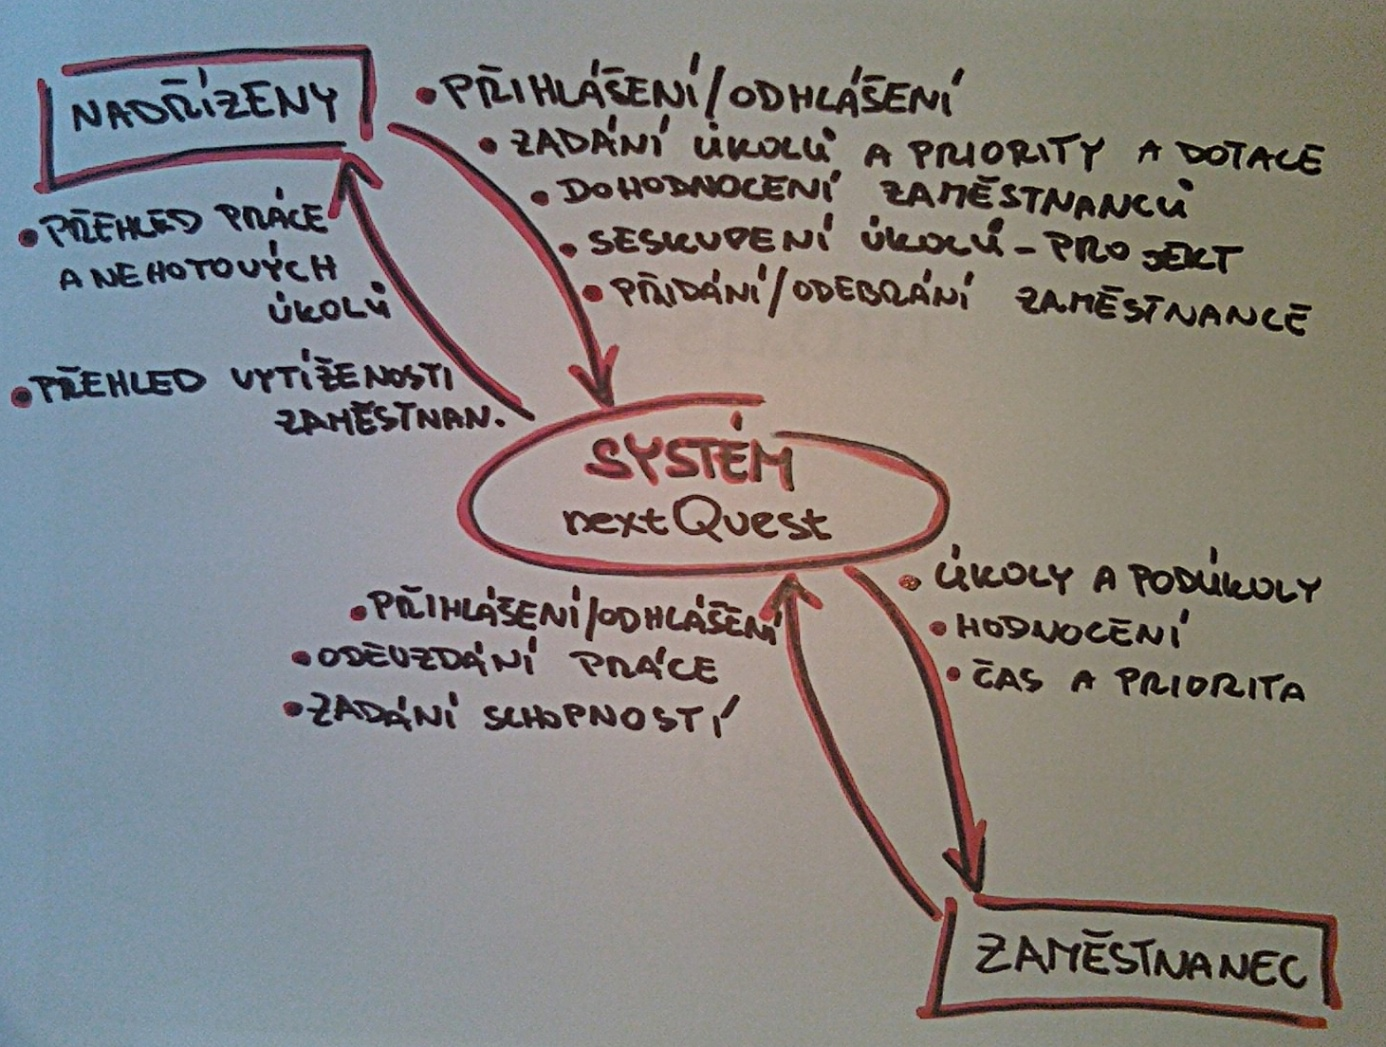 NADŘÍZENY
• PŘIHLÁŠENÍ/ODHLÁŠENÍ
• ZADÁNÍ ÚKOLŮ A PRIORITY A DOTACE
• DOHODNOCENÍ ZAMĚSTNANCŮ
• SESKUPENÍ ÚKOLŮ - PROJEKT
• PŘIDÁNÍ/ODEBRÁNÍ ZAMĚSTNANCE
• PŘEHLED PRÁCE
A NEHOTOVÝCH
ÚKOLŮ
• PŘEHLED VYTÍŽENOSTI
ZAMĚSTNAN.
SYSTÉM
nextQuest
• PŘIHLÁŠENÍ/ODHLÁŠENÍ
• ODEVZDÁNÍ PRÁCE
• ZADÁNÍ SCHOPNOSTÍ
• ÚKOLY A PODÚKOLY
• HODNOCENÍ
• ČAS A PRIORITA
ZAMĚSTNANEC